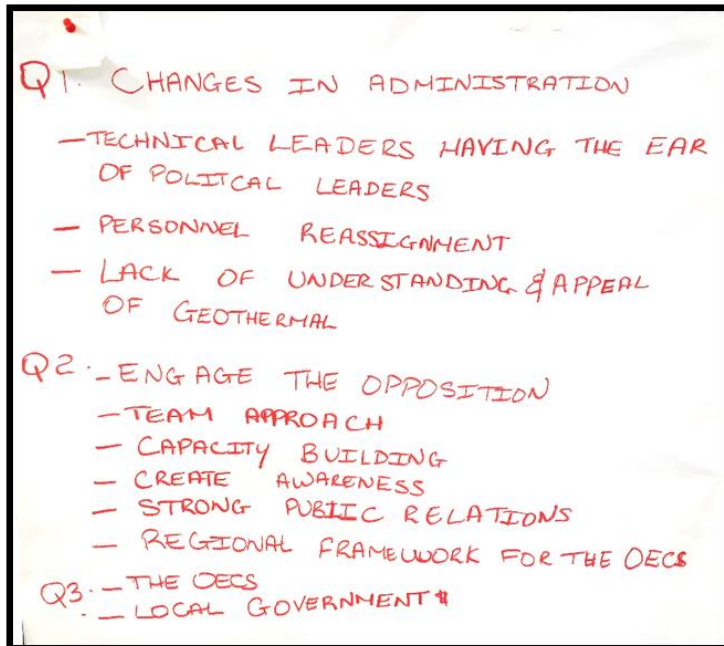 Q1. CHANGES IN ADMINISTRATION
— TECHNICAL LEADERS HAVING THE EAR
OF POLITCAL LEADERS
— PERSONNEL REASSIGNMENT
— LACK OF UNDERSTANDING & APPEAL
OF GEOTHERMAL
Q2. — ENGAGE THE OPPOSITION
— TEAM APPROACH
— CAPACITY BUILDING
— CREATE AWARENESS
— STRONG PUBLIC RELATIONS
— REGIONAL FRAMEWORK FOR THE OECS
Q3. — THE OECS
— LOCAL GOVERNMENT